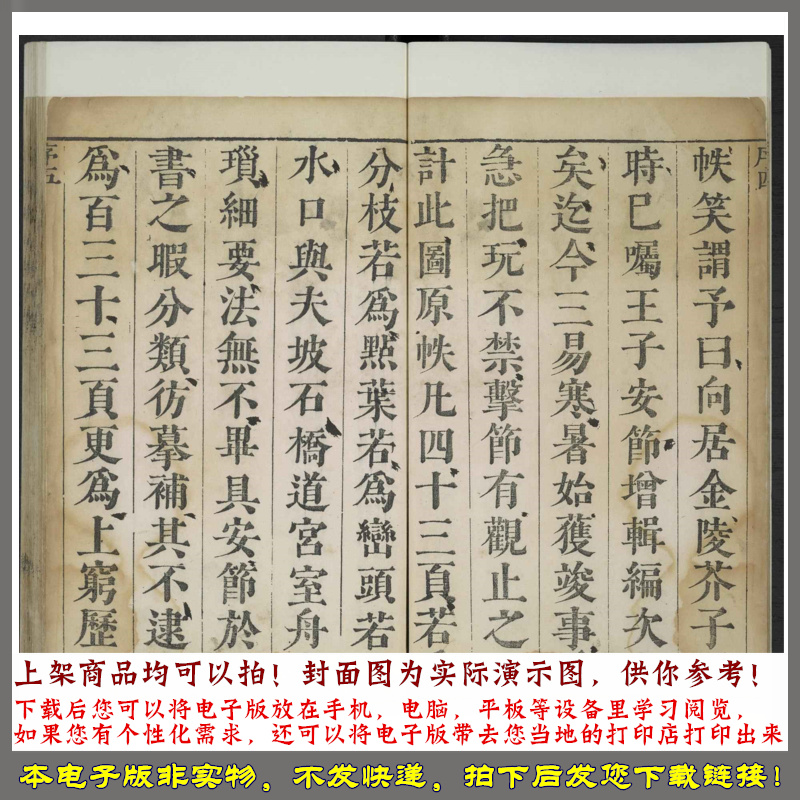 序四
帙笑謂予曰向居金陵芥子
時已囑王子安節增輯編次
矣迄今三易寒暑始獲竣事
急把玩不禁擊節有觀止之
計此圖原帙凡四十三頁若
分枝若爲點葉若爲巒頭若
水口與夫坡石橋道宮室舟
瑣細要法無不畢具安節於
書之暇分類彷摹補其不逮
爲百三十三頁更爲上窮歷
序五
上架商品均可以拍！封面图为实际演示图，供你参考！
下载后您可以将电子版放在手机，电脑，平板等设备里学习阅览，
如果您有个性化需求，还可以将电子版带去您当地的打印店打印出来
本电子版非实物，不发快递，拍下后发您下载链接！